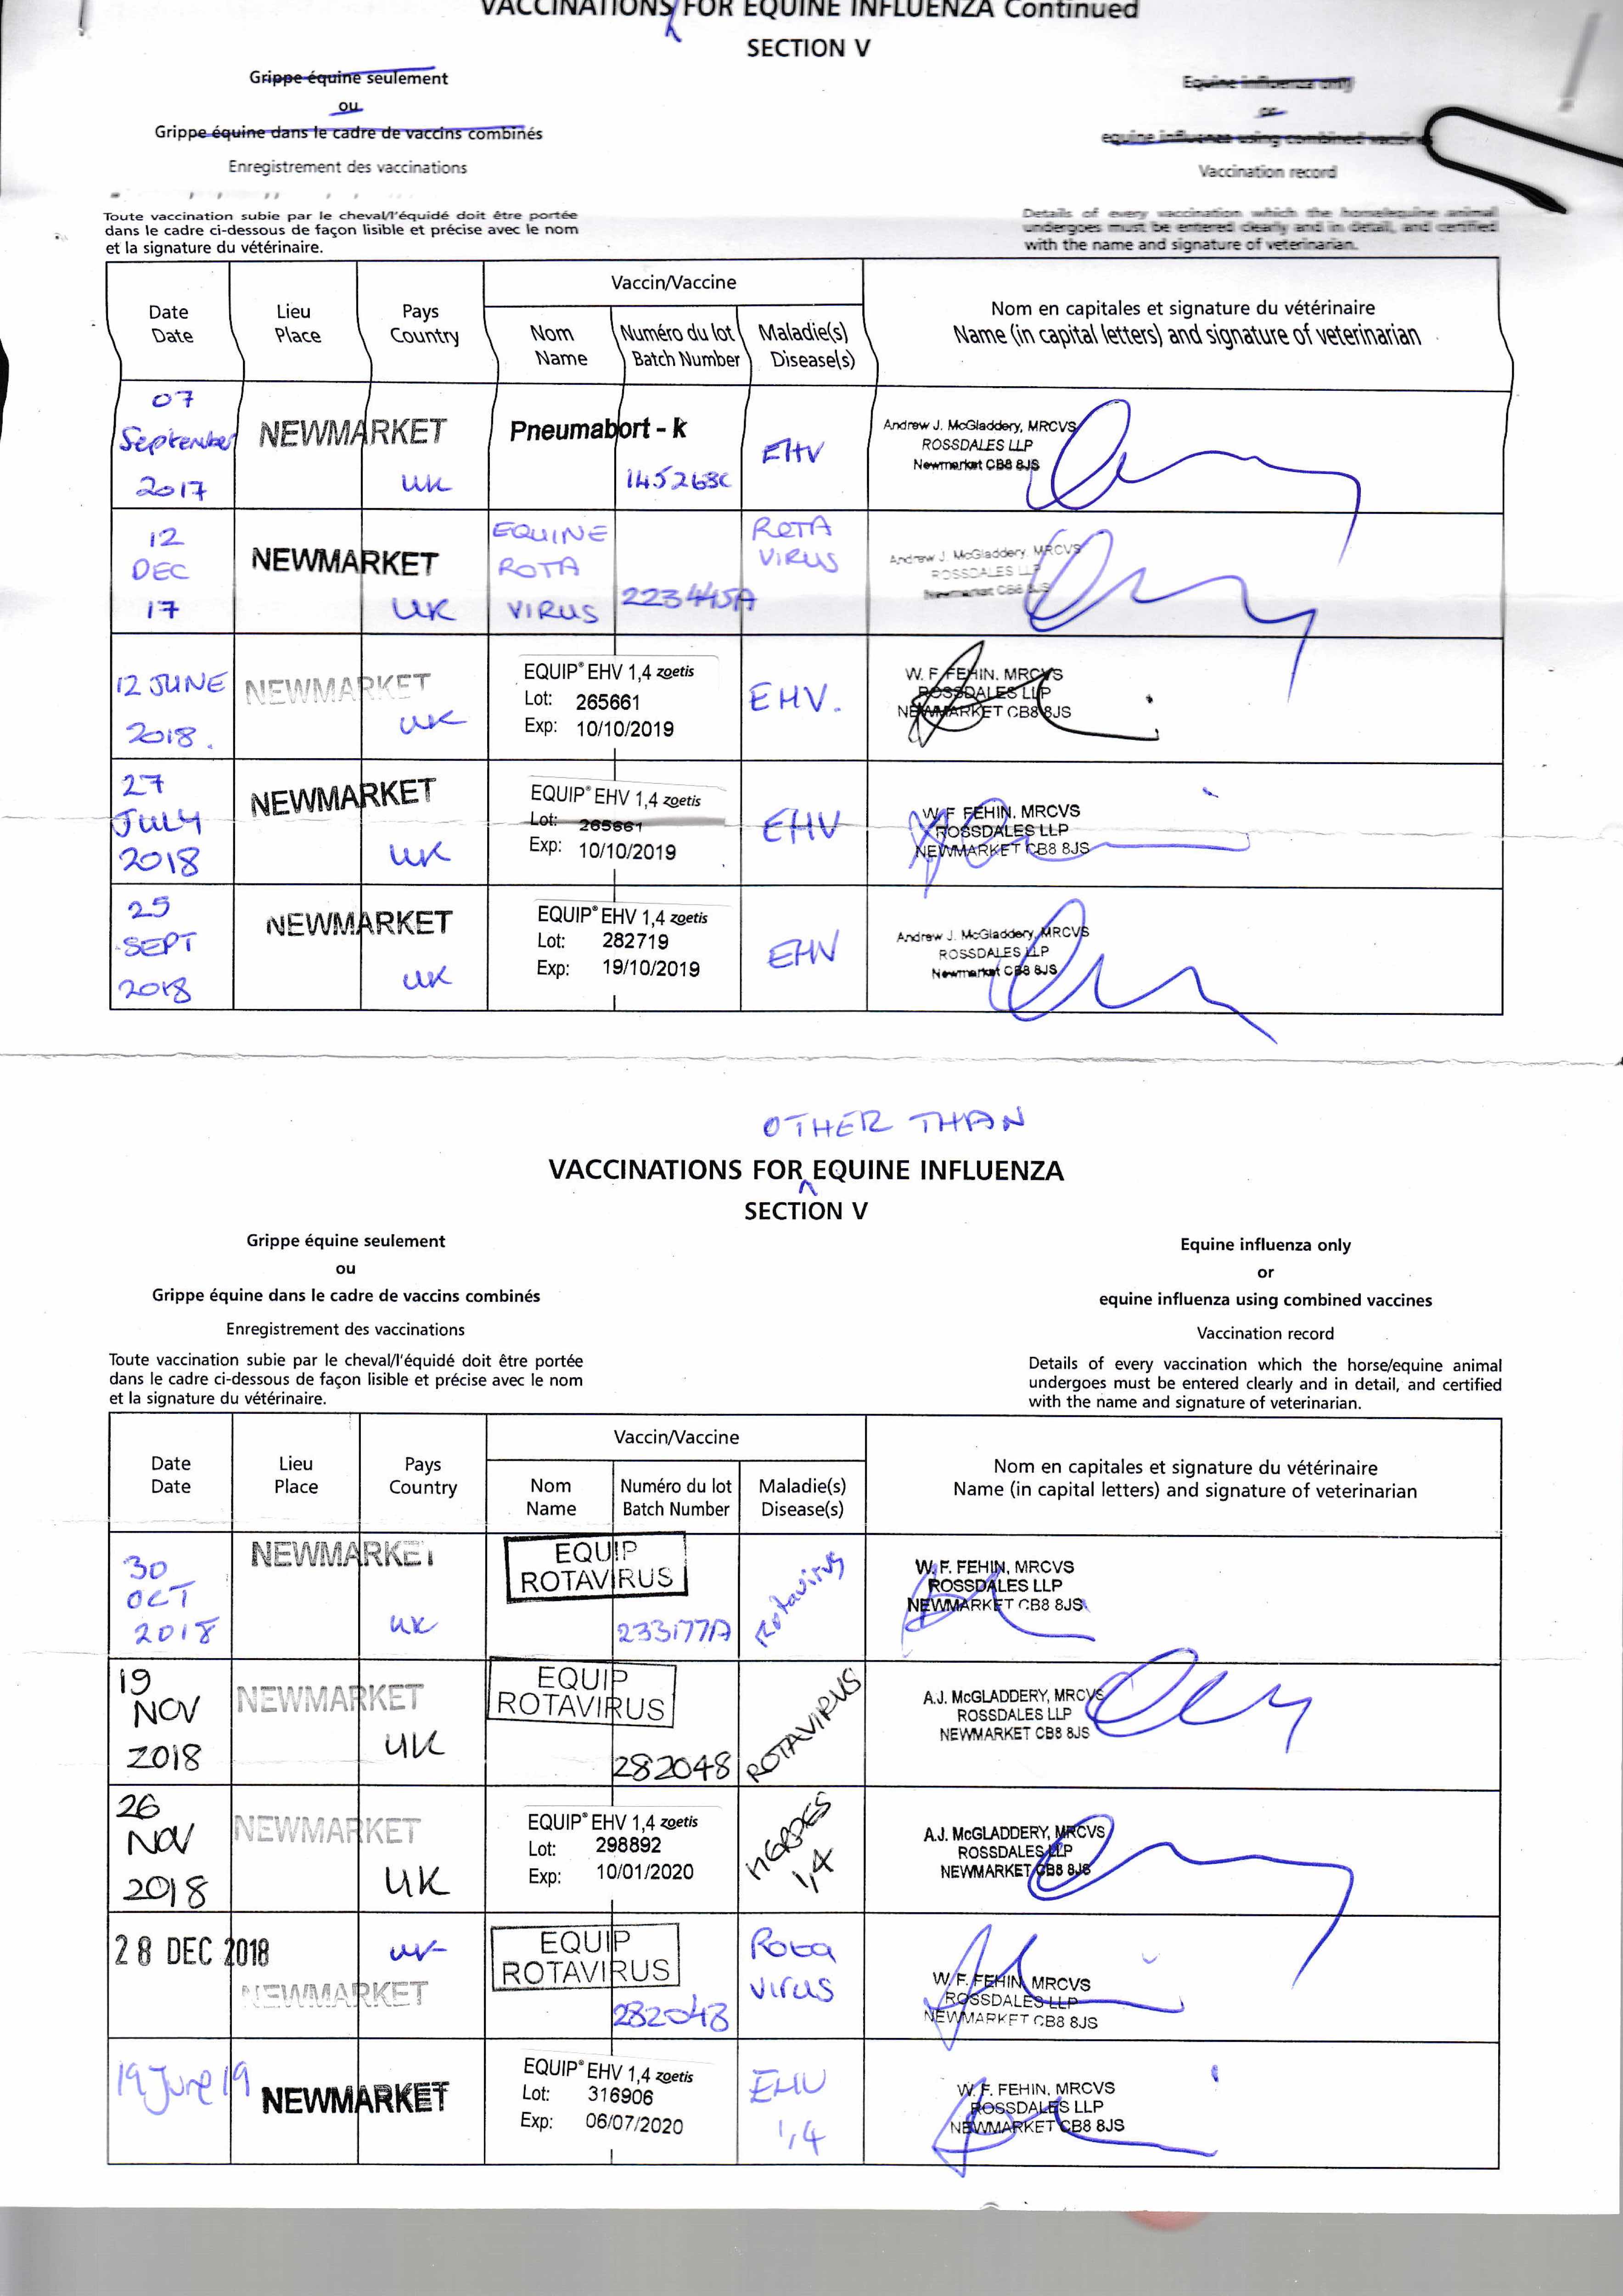 VACCINATIONS FOR EQUINE INFLUENZA Continued
SECTION V
Grippe équine seulement
ou
Grippe équine dans le cadre de vaccins combinés
Enregistrement des vaccinations
Toute vaccination subie par le cheval/l'équidé doit être portée
dans le cadre ci-dessous de façon lisible et précise avec le nom
et la signature du vétérinaire.
Equine influenza only
or
equine influenza using combined vaccines
Vaccination record
Details of every vaccination which the horse/equine animal
undergoes must be entered clearly and in detail, and certified
with the name and signature of veterinarian.
Date
Date
Lieu
Place
Pays
Country
Vaccin/Vaccine
Nom
Name
Numéro du lot
Batch Number
Maladie(s)
Disease(s)
Nom en capitales et signature du vétérinaire
Name (in capital letters) and signature of veterinarian
07
September
2017
NEWMARKET
UK
Pneumabort - k
145263C
EHV
Andrew J. McGladdery, MRCVS
ROSSDALES LLP
Newmarket CB8 8JS
12
DEC
17
NEWMARKET
UK
EQUINE
ROTA
VIRUS
223445A
ROTA
VIRUS
Andrew J. McGladdery, MRCVS
ROSSDALES LLP
Newmarket CB8 8JS
12 JUNE
2018.
NEWMARKET
UK
EQUIP® EHV 1,4 zoetis
Lot: 265661
Exp: 10/10/2019
EHV.
W. F. FEHIN. MRCVS
ROSSDALES LLP
NEWMARKET CB8 8JS
27
JULY
2018
NEWMARKET
UK
EQUIP® EHV 1,4 zoetis
Lot: 265661
Exp: 10/10/2019
EHV
W. F FEHIN. MRCVS
ROSSDALES LLP
NEWMARKET CB8 8JS
25
SEPT
2018
NEWMARKET
UK
EQUIP® EHV 1,4 zoetis
Lot: 282719
Exp: 19/10/2019
EHV
Andrew J. McGladdery, MRCVS
ROSSDALES LLP
Newmarket CB8 8JS
OTHER THAN
VACCINATIONS FOR EQUINE INFLUENZA
SECTION V
Grippe équine seulement
ou
Grippe équine dans le cadre de vaccins combinés
Enregistrement des vaccinations
Toute vaccination subie par le cheval/l'équidé doit être portée
dans le cadre ci-dessous de façon lisible et précise avec le nom
et la signature du vétérinaire.
Equine influenza only
or
equine influenza using combined vaccines
Vaccination record
Details of every vaccination which the horse/equine animal
undergoes must be entered clearly and in detail, and certified
with the name and signature of veterinarian.
Date
Date
Lieu
Place
Pays
Country
Vaccin/Vaccine
Nom
Name
Numéro du lot
Batch Number
Maladie(s)
Disease(s)
Nom en capitales et signature du vétérinaire
Name (in capital letters) and signature of veterinarian
30
OCT
2018
NEWMARKET
UK
EQUIP
ROTAVIRUS
233177A
Rotavirus
W. F. FEHIN, MRCVS
ROSSDALES LLP
NEWMARKET CB8 8JS
19
NOV
2018
NEWMARKET
UK
EQUIP
ROTAVIRUS
282048
ROTAVIRUS
A.J. McGLADDERY, MRCVS
ROSSDALES LLP
NEWMARKET CB8 8JS
26
NOV
2018
NEWMARKET
UK
EQUIP® EHV 1,4 zoetis
Lot: 298892
Exp: 10/01/2020
HERPES
1,4
A.J. McGLADDERY, MRCVS
ROSSDALES LLP
NEWMARKET CB8 8JS
28 DEC 2018
NEWMARKET
UK
EQUIP
ROTAVIRUS
282048
Rota
virus
W. F. FEHIN, MRCVS
ROSSDALES LLP
NEWMARKET CB8 8JS
19 June 19
NEWMARKET
EQUIP® EHV 1,4 zoetis
Lot: 316906
Exp: 06/07/2020
EHV
1,4
W. F. FEHIN, MRCVS
ROSSDALES LLP
NEWMARKET CB8 8JS